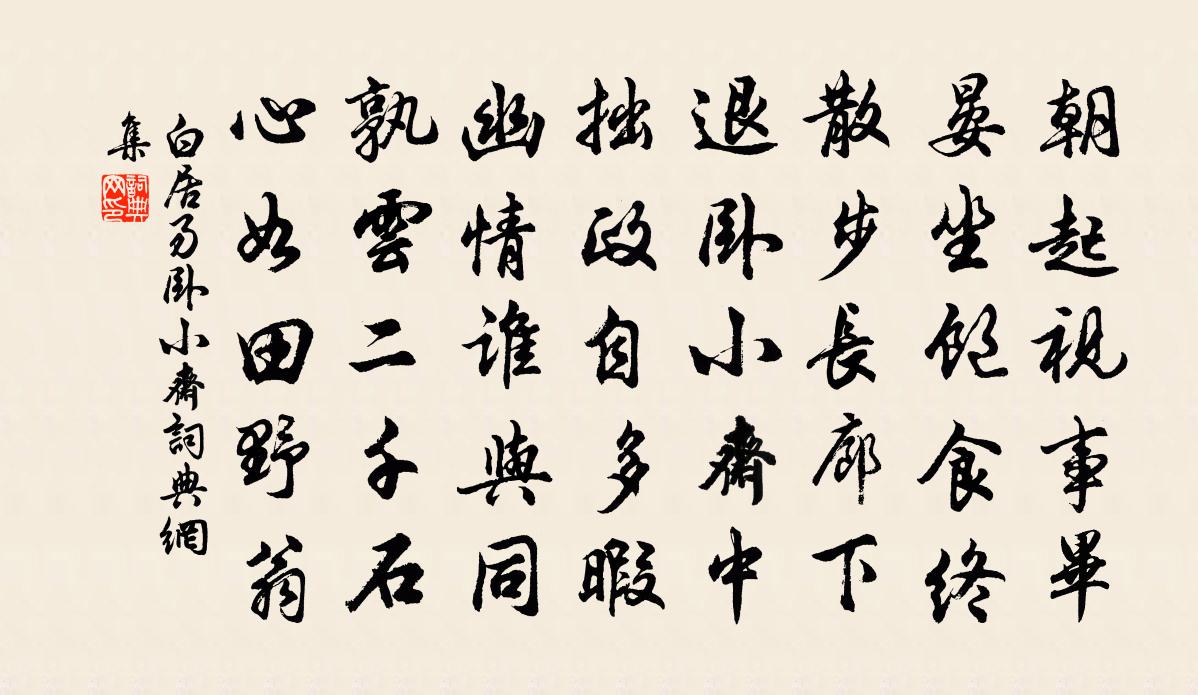 朝起視事畢
晏坐飽食終
散步長廊下
退卧小齋中
拙政自多暇
幽情誰與同
孰雲二千石
心如田野翁
白居易卧小齋詞典網
集
詞典
網印